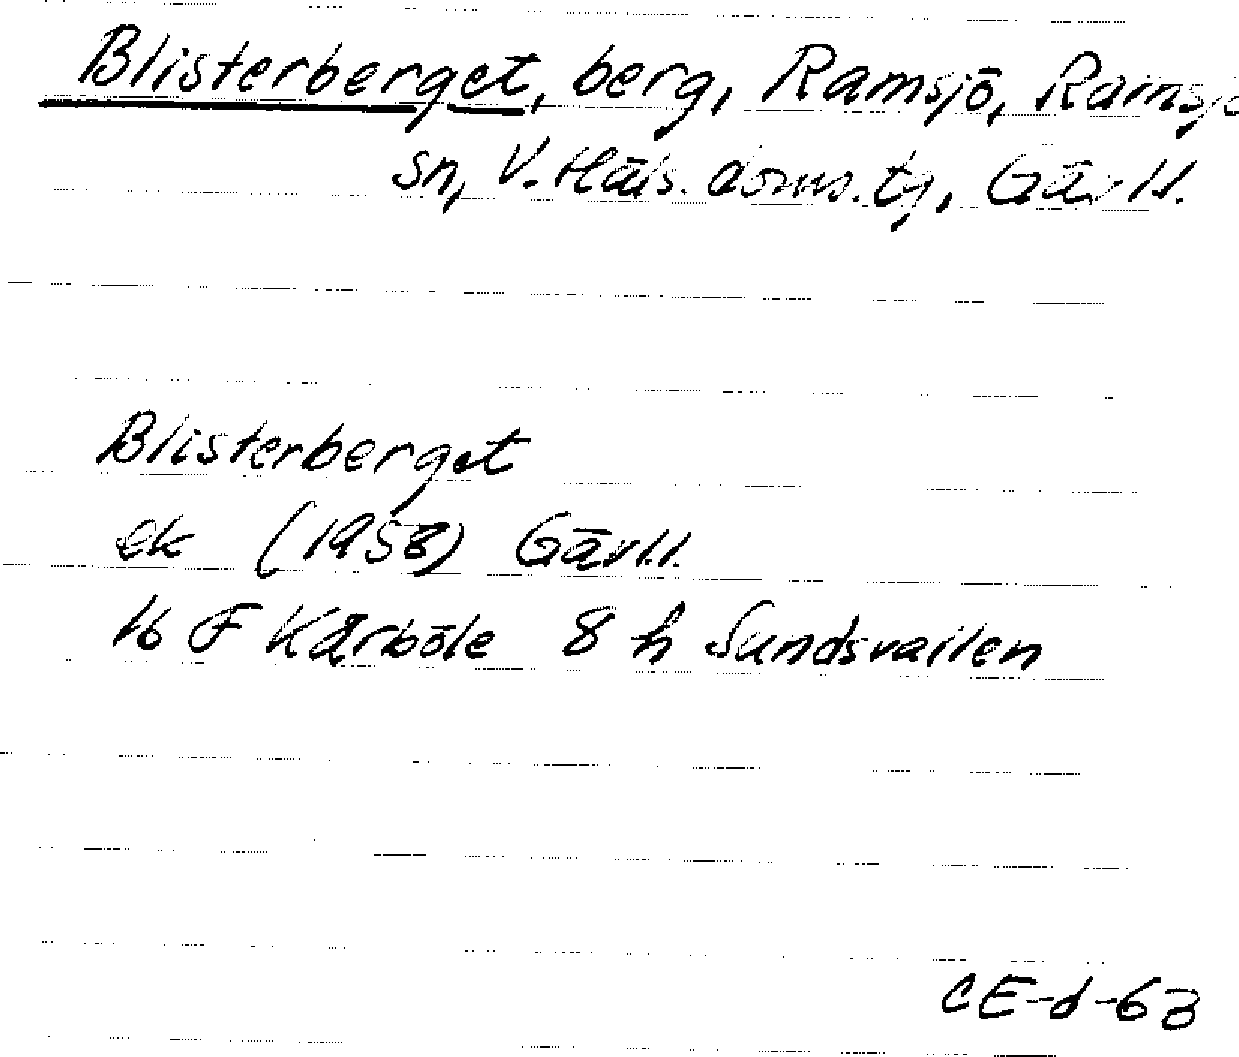 Blisterberget, berg, Ramsjö, Ramsjö
sn, V. Häls. doms. tg, Gävl.l.
Blisterberget
ek (1958) Gävl.l.
16 F Kårböle 8 h Sundsvallen
CE-d-63